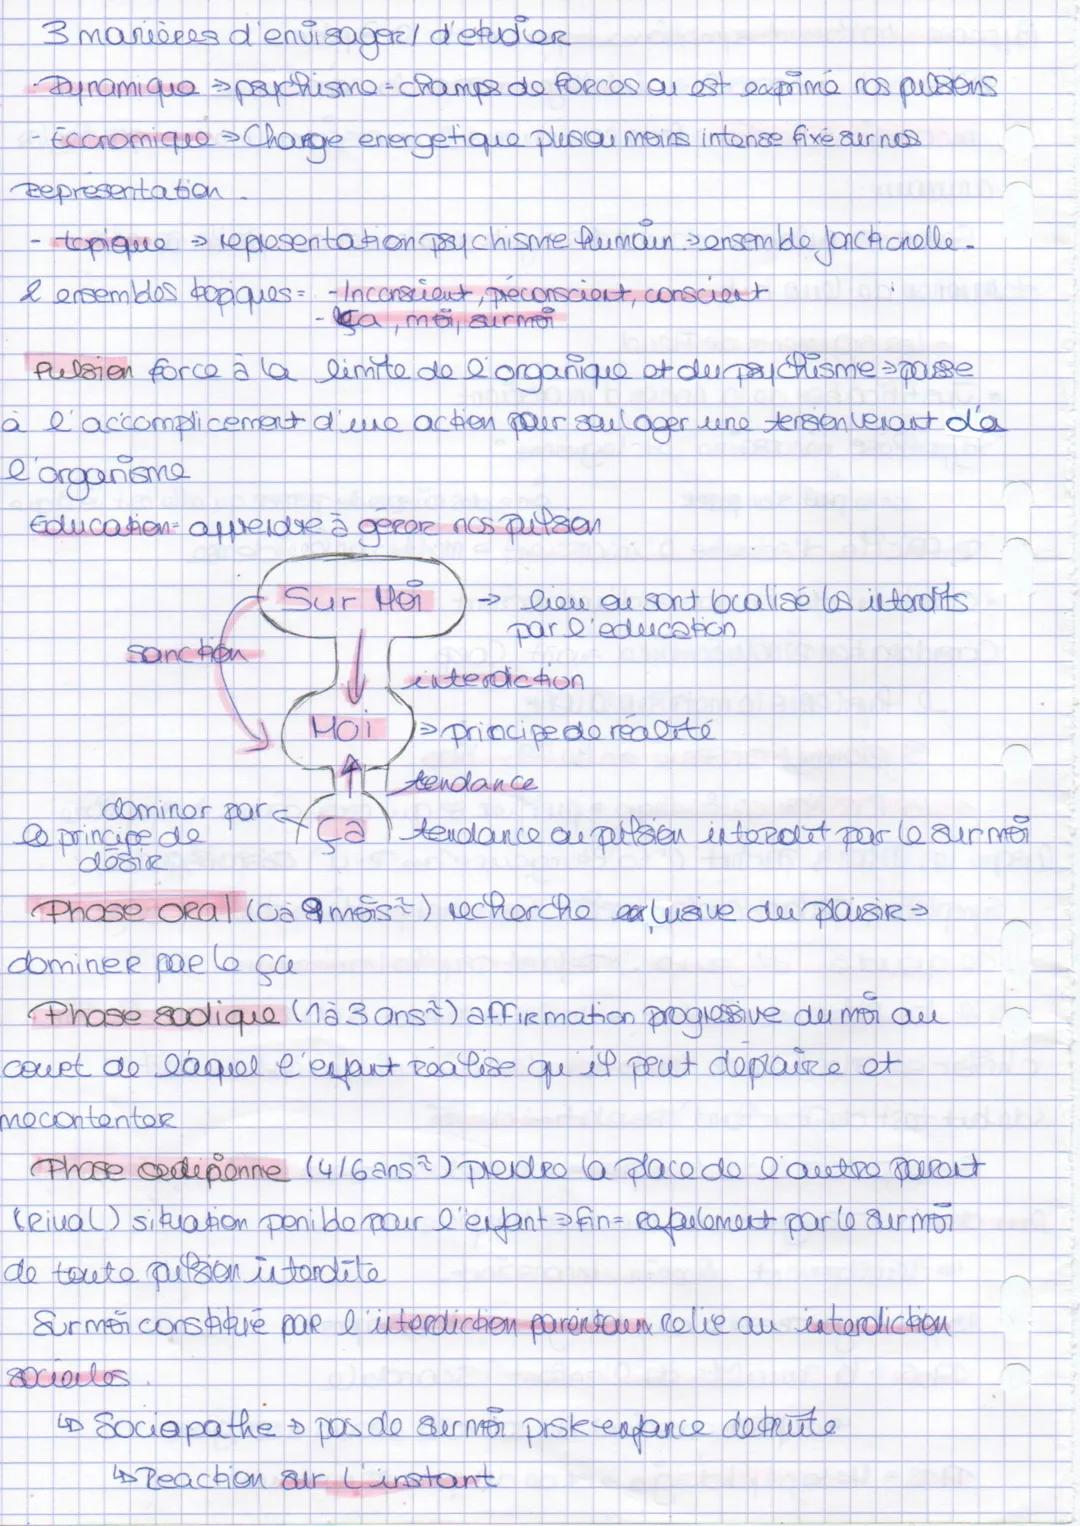 3 manières d'envisager/ d'etudier
- Dynamique => psychisme = champs de forces ou est exprimé nos pulsions
- Economique => Charge energetique plus ou moins intense fixé sur nos
représentation.
- topique => representation psychisme humain => ensemble fonctionelle.
2 ensembles topiques = - Inconscient, préconscient, conscient
- ça, moi, surmoi
Pulsion force à la limite de l'organique et du psychisme => passe
à l'accomplicement d'une action pour soulager une tension venant d'a
l'organisme
Education = apprendre à gérer nos pulsion
Sur Moi -> lieu ou sont localisé les interdits
par l'education
sanction
interdiction
Moi => principe de réalité
tendance
dominer par
le principe de
désir
ça tendance ou pulsion interdit par le surmoi
Phase oral (0 à 9 mois ~) recherche exclusive du plaisir =>
dominer par le ça
Phase sadique (1 à 3 ans ~) affirmation progressive du moi au
court de laquel l'enfant réalise qu'il peut déplaire et
mecontenter
Phase oedipienne (4/6 ans ~) prendre la place de l'autre parent
(rival) situation penible pour l'enfant => fin = refoulement par le surmoi
de toute pulsion interdite
Surmoi constitué par l'interdiction parentaux relie au interdiction
sociales.
↳ Sociopathe => pas de surmoi prsk enfance detruite
↳ Reaction sur l'instant